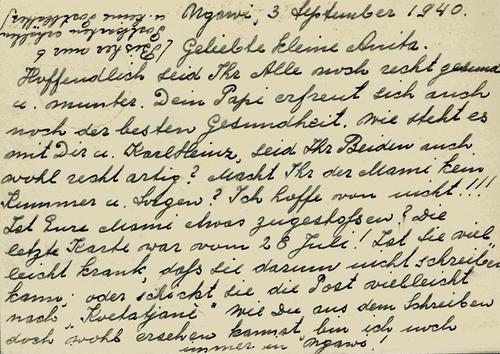 Ngawi, 3 September 1940.
Geliebte kleine Anita.
Hoffendlich seid Ihr Alle noch recht gesund
u. munter. Dein Papi erfreut sich auch
noch der besten Gesundheit. Wie steht es
mit Dir u. Karlheinz, seid Ihr Beiden auch
wohl recht artig? Macht Ihr der Mami kein
Kummer u. Sorgen? Ich hoffe von nicht!!!
Ist Eure Mami etwas zugestoßen? Die
letzte Karte war vom 28 Juli! Ist sie viel
leicht krank, daß sie darum nicht schreiben
kann; oder schickt sie die Post vielleicht
nach "Koetatjane" Wie Du aus dem Schreiben
doch wohl ersehen kannst bin ich noch
immer in Ngawi!
(Bisher nur 6
Postkarten erhalten
u. keine